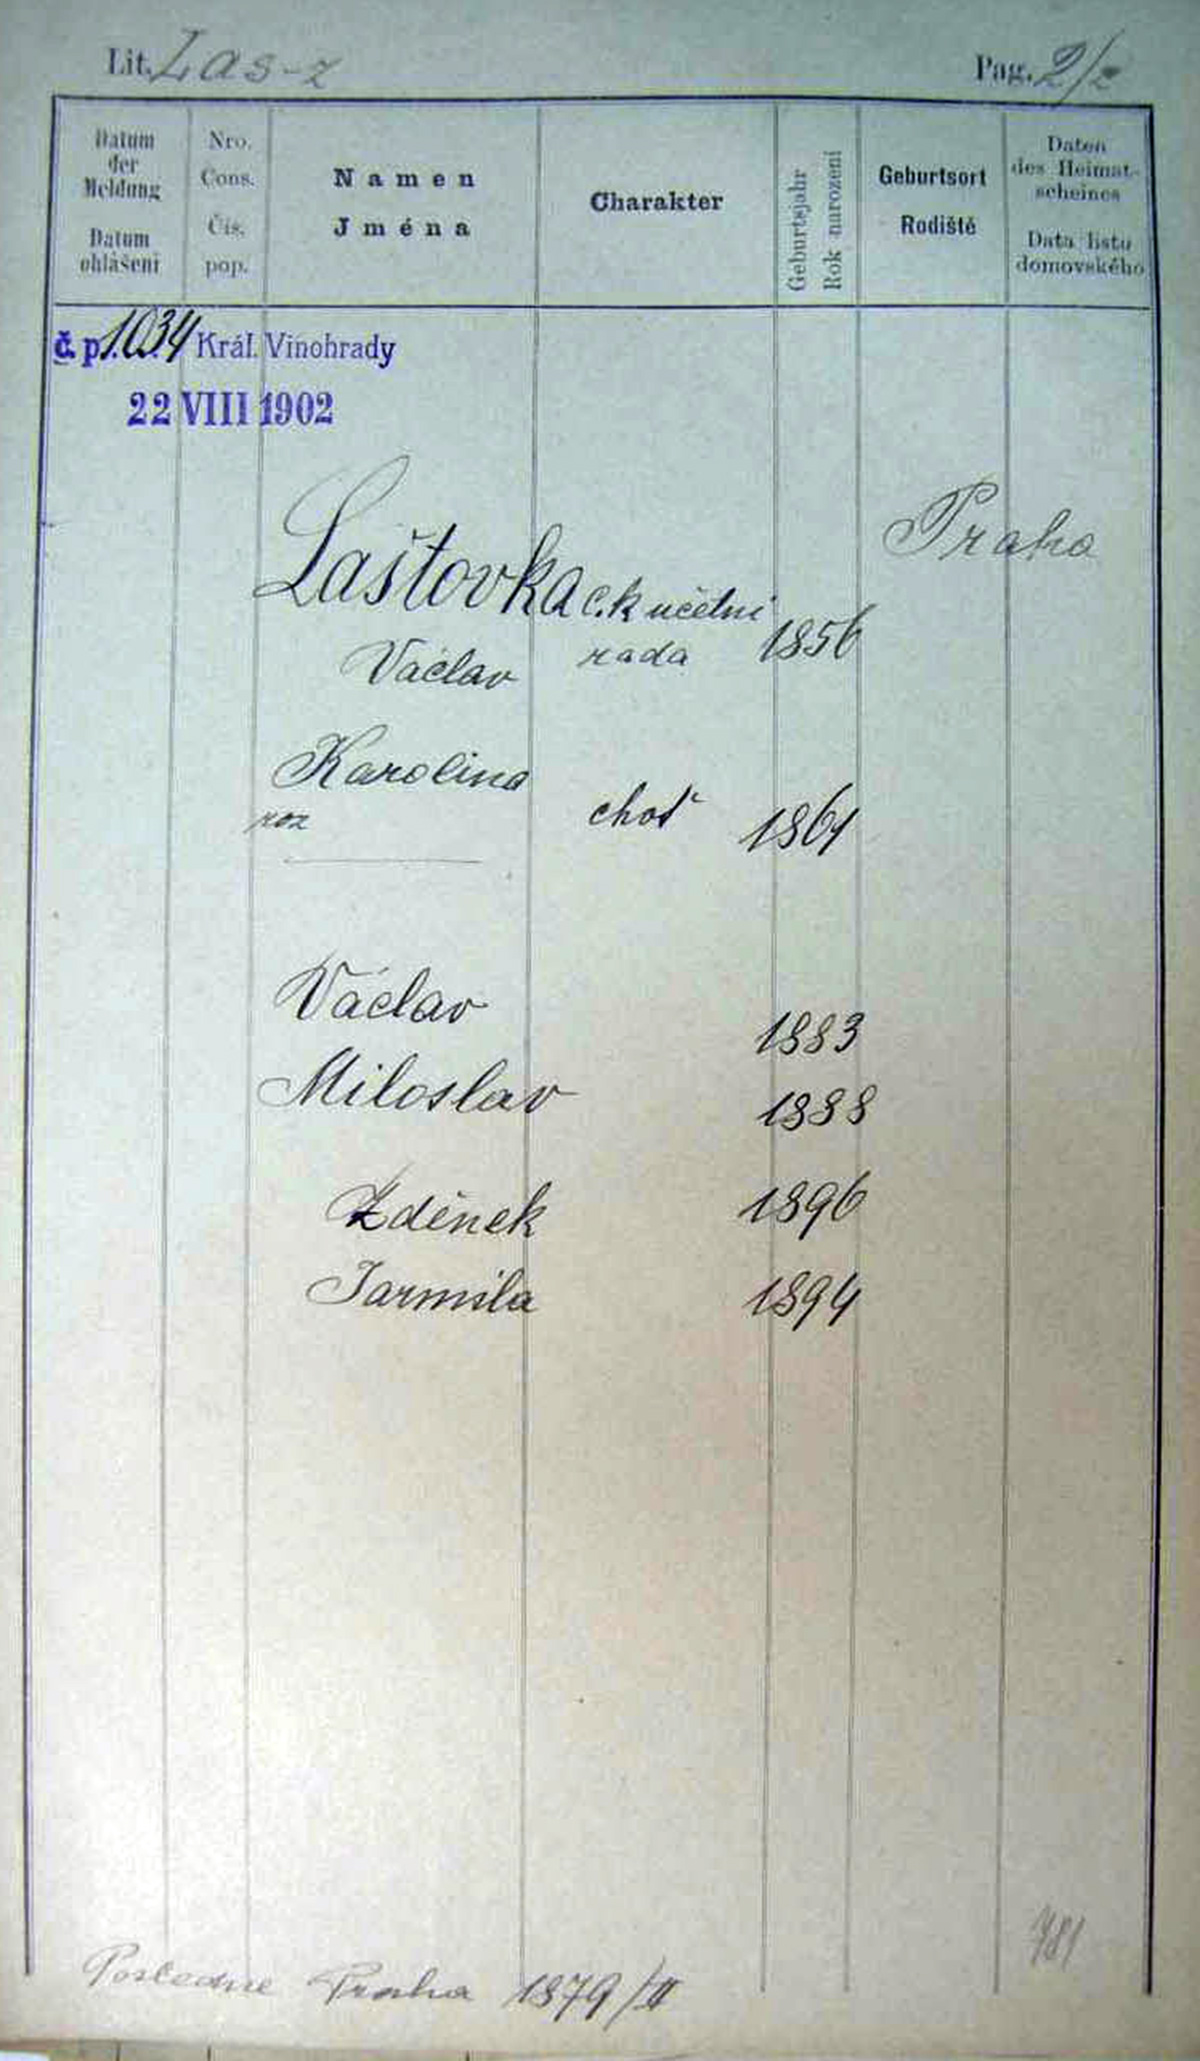 Lit. Las-z Pag. 2/z
Datum der Meldung
Datum ohlášení
Nro. Cons.
Čís. pop.
Namen
Jména
Charakter
Geburtsjahr
Rok narození
Geburtsort
Rodiště
Daten des Heimat-scheines
Data listu domovského
č. p. 1034 Král. Vinohrady
22 VIII 1902
Praha
Laštovka c. k účetní
Václav rada 1856
Karolina
roz choť 1861
Václav 1883
Miloslav 1888
Zděnek 1896
Jarmila 1894
781
Posledně Praha 1879/II